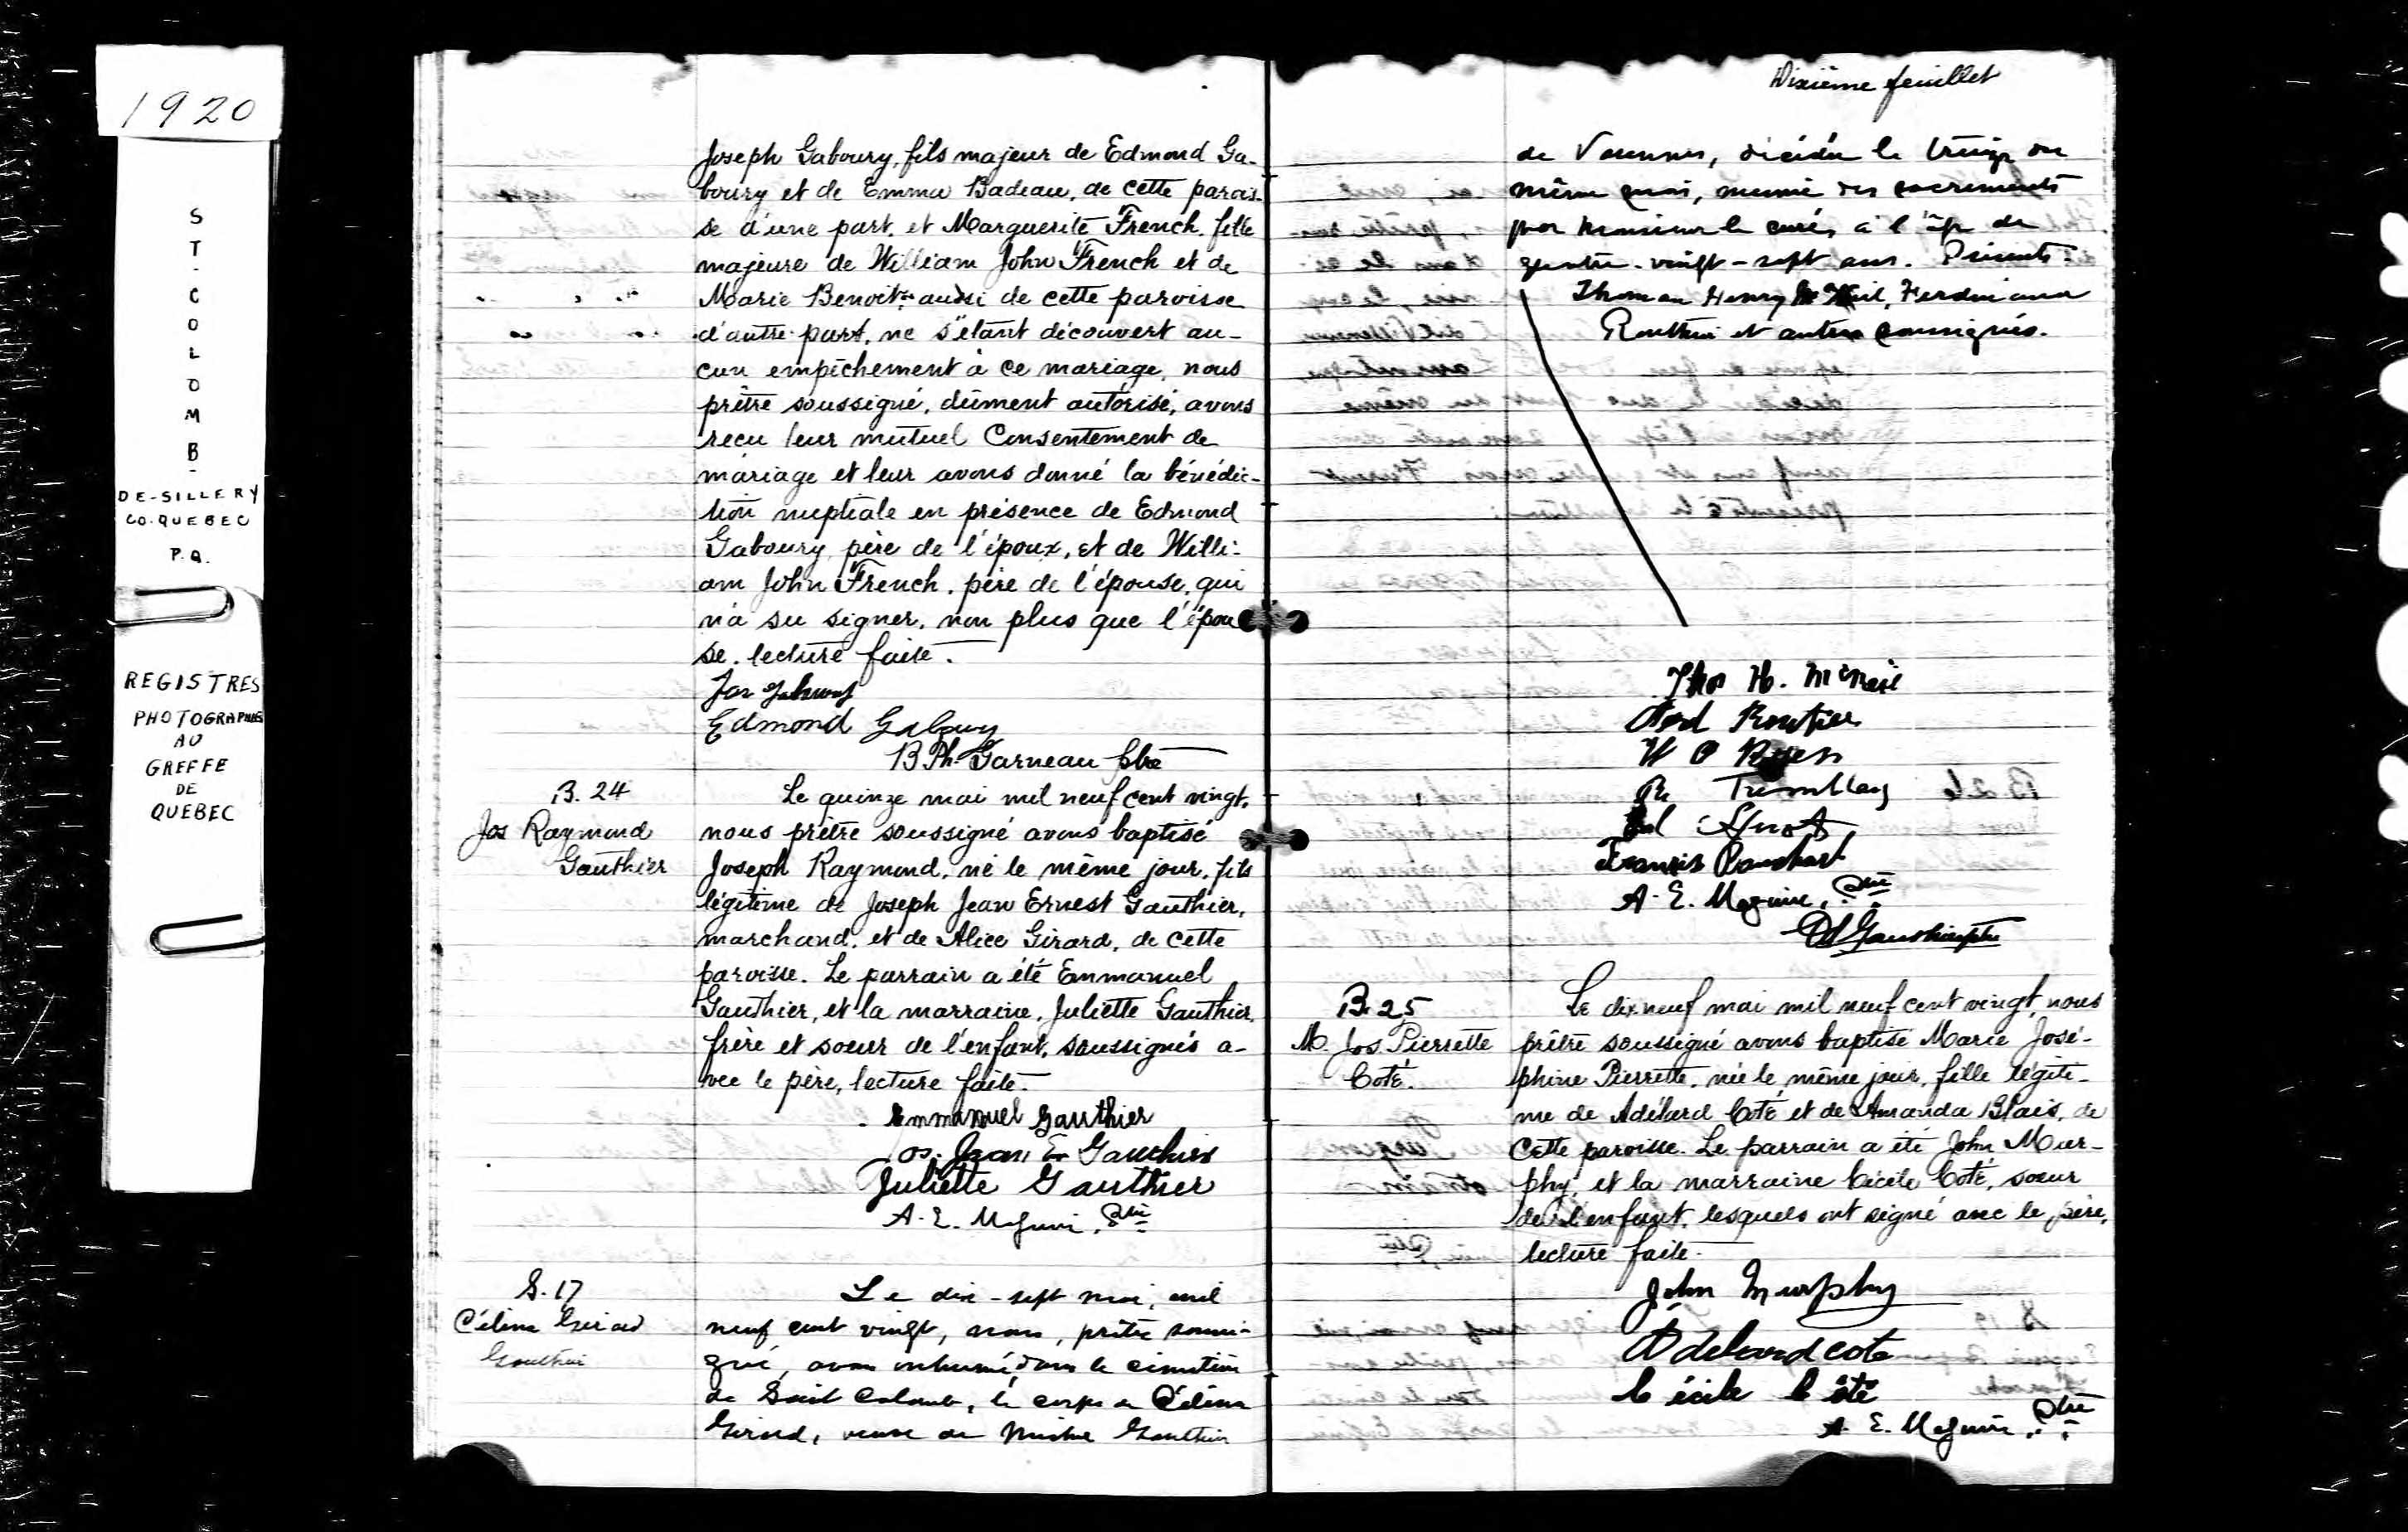 1920
ST-COLOMB-
DE-SILLERY
CO. QUEBEC
P.Q.
REGISTRES
PHOTOGRAPHIES
AU
GREFFE
DE
QUEBEC
Joseph Gaboury, fils majeur de Edmond Ga-
boury et de Emma Badeau, de cette parois-
se d'une part, et Marguerite French, fille
majeure de William John French et de
Marie Benoit aussi de cette paroisse
d'autre part, ne s'étant découvert au-
cun empêchement à ce mariage, nous
prêtre soussigné, dûment autorisé, avons
reçu leur mutuel Consentement de
mariage et leur avons donné la bénédic-
tion nuptiale en présence de Edmond
Gaboury, père de l'époux, et de Willi-
am John French, père de l'épouse, qui
n'a su signer, non plus que l'épou
se, lecture faite.
Jos Gaboury
Edmond Gaboury
B Ph. Garneau ptre
B. 24
Jos Raymond
Gauthier
Le quinze mai mil neuf cent vingt,
nous prêtre soussigné avons baptisé
Joseph Raymond, né le même jour, fils
légitime de Joseph Jean Ernest Gauthier,
marchand, et de Alice Girard, de cette
paroisse. Le parrain a été Emmanuel
Gauthier, et la marraine, Juliette Gauthier,
frère et soeur de l'enfant, soussignés a-
vec le père, lecture faite.
Emmanuel Gauthier
Jos. Jean E Gauthier
Juliette Gauthier
A. E. Maguire, Ptre
S. 17
Célina Girard
Gauthier
Le dix-sept mai, mil
neuf cent vingt, nous, prêtre soussi-
gné, avons inhumé, dans le cimetière
de Saint Colomb, le corps de Célina
Girard, veuve de Michel Gauthier
Dixième feuillet
de Vannes, décédée le treize du
même mois, munie des sacrements
par Monsieur le curé, à l'âge de
quatre-vingt-sept ans. Présents:
Thomas Henry McNeil, Ferdinand
Routhier et autres soussignés.
Thos H. McNeil
Ferd Routier
W O
Tremblay
Francis Bouchard
A. E. Maguire, Ptre
B. 25
M. Jos. Pierrette
Coté.
Le dix neuf mai mil neuf cent vingt, nous
prêtre soussigné avons baptisé Marie José-
phine Pierrette, née le même jour, fille légiti-
me de Adélard Coté et de Amanda Blais, de
Cette paroisse. Le parrain a été John Mur-
phy, et la marraine Cécile Coté, soeur
de l'enfant, lesquels ont signé avec le père,
lecture faite.
John Murphy
Adelard cote
Cécile Côté
A. E. Maguire, Ptre